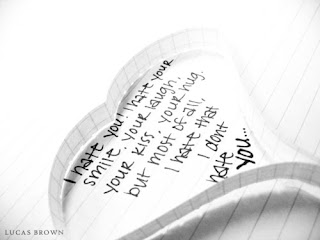 I hate you! I hate your
smile. Your laugh.
Your kiss. Your hug.
but most of all,
I hate that
I dont
hate
you...
LUCAS BROWN